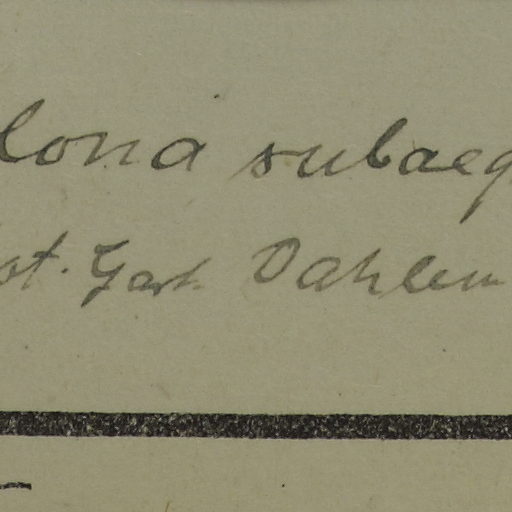 lona subaeq
ot. Gart. Dahlem